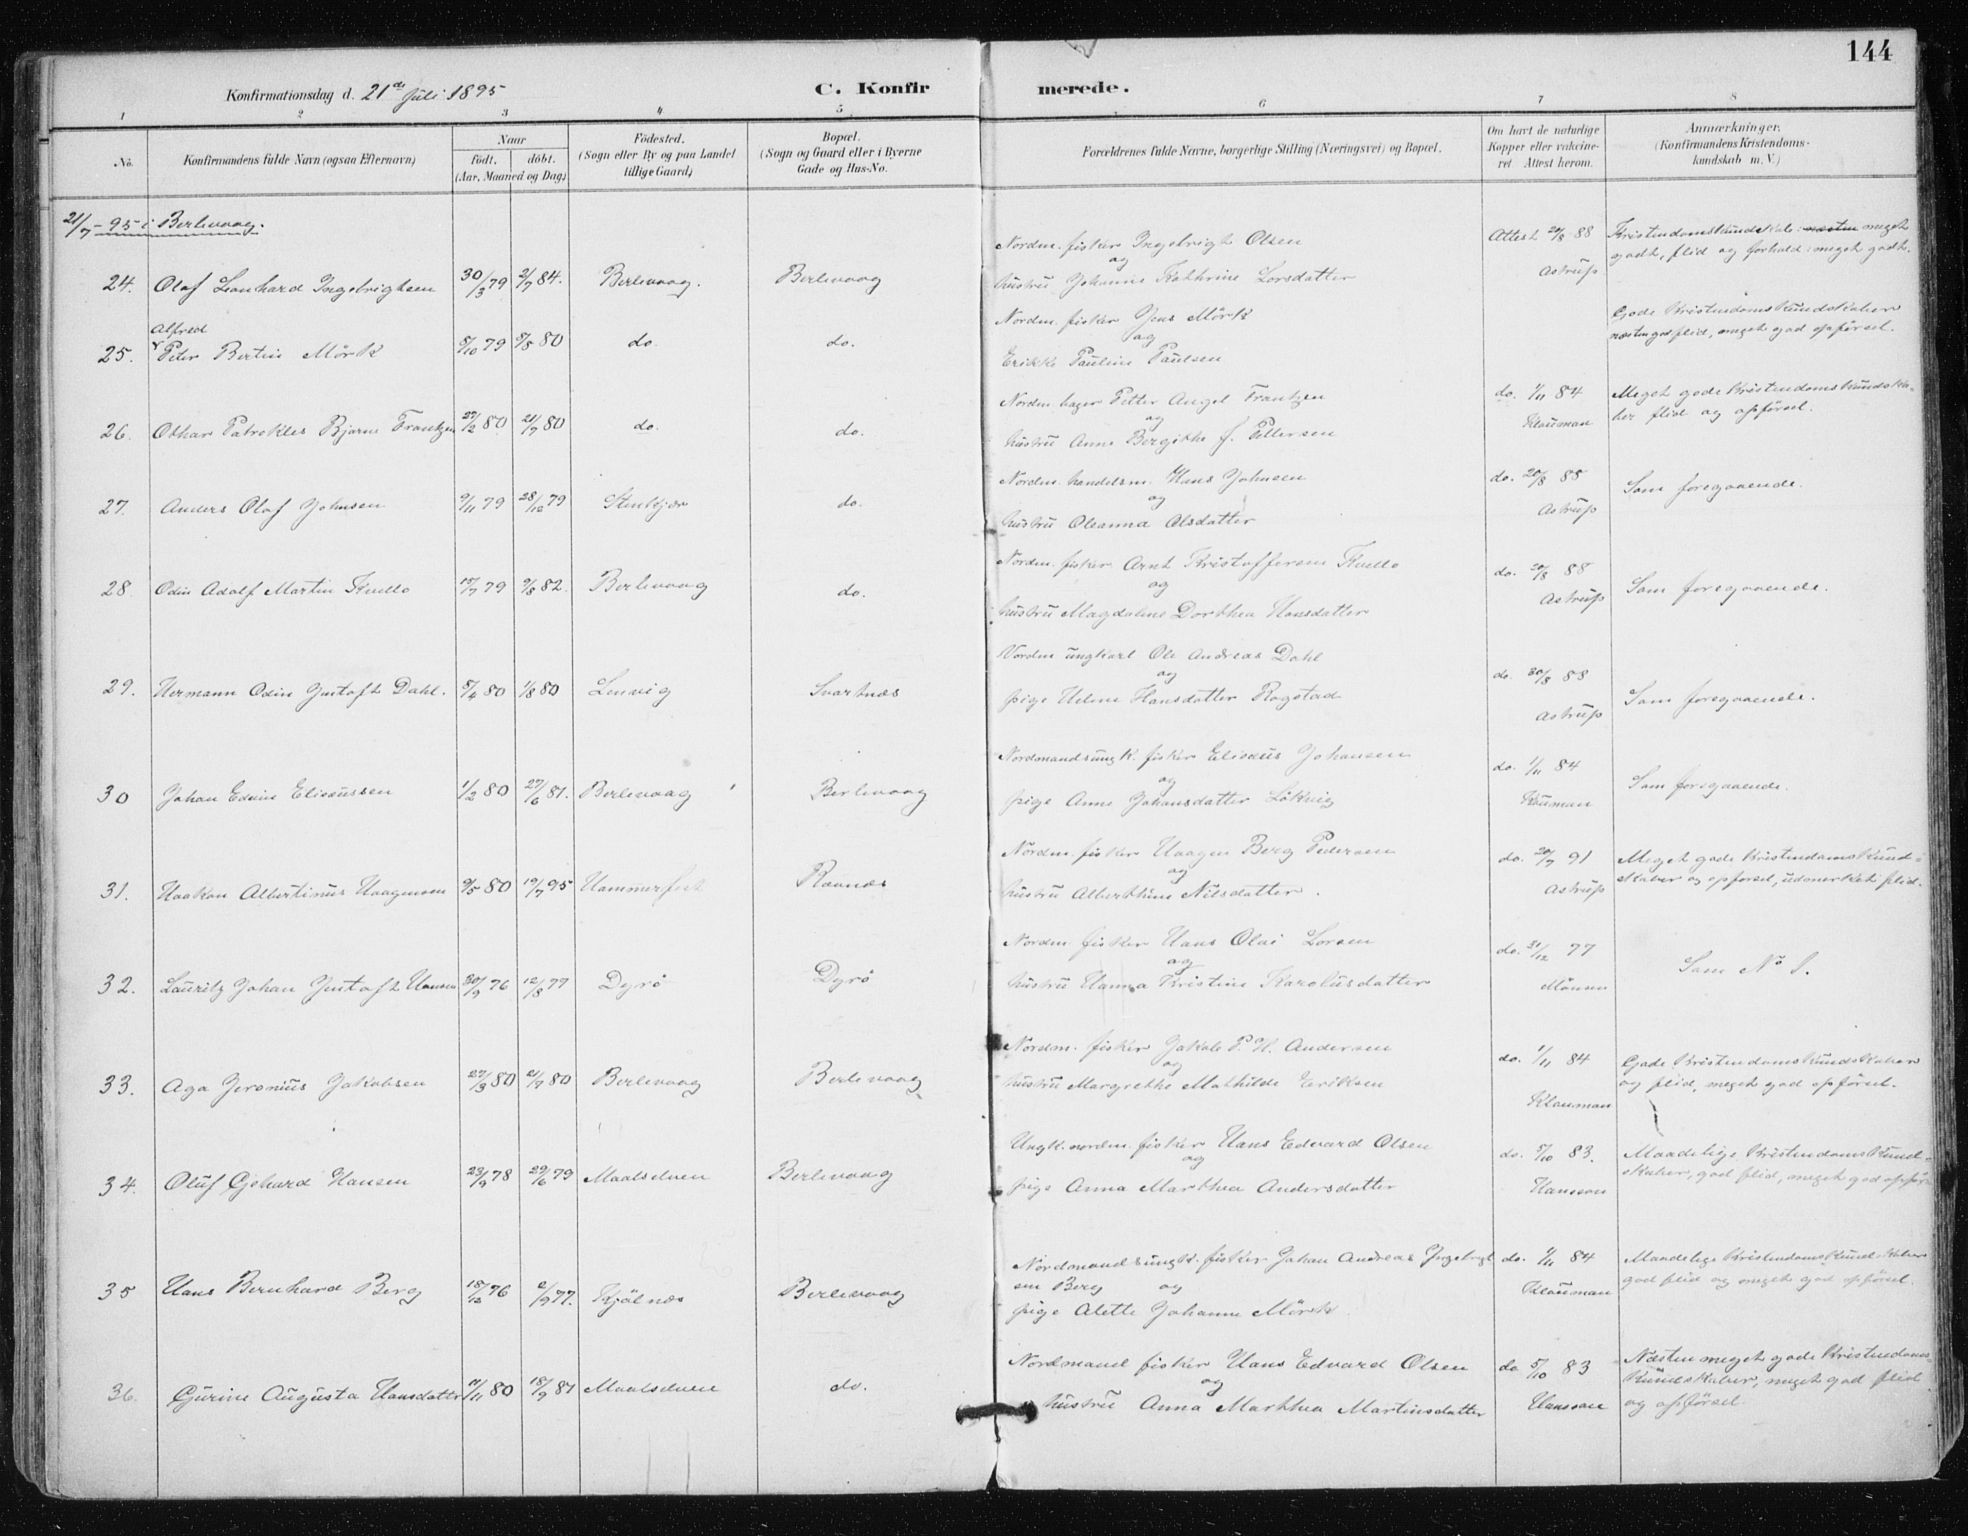 144
Konfirmationsdag d. 21de Juli 1895
C. Konfirmerede.
1 2 3 4 5 6 7 8
No.
Konfirmandens fulde Navn (ogsaa Efternavn)
Naar
født. døbt.
(Aar, Maaned og Dag)
Födested.
(Sogn eller By og paa Landet
tillige Gaard)
Bopæl.
(Sogn og Gaard eller i Byerne
Gade og Hus-No.
Forældrenes fulde Navne, borgerlige Stilling (Næringsvei) og Bopæl.
Om havt de naturlige
Kopper eller vakcine-
ret Attest herom.
Anmærkninger.
(Konfirmandens Kristendoms-
kundskab m. V.)
21/7 - 95 i Berlevaag.
24. Olaf Leonhard Ingebrigtsen 30/3 79 2/7 84. Berlevaag. Berlevaag
Nordm. fisker Ingebrigt Olsen
og
hustru Johanne Kathrine Larsdatter
Attest 20/8 88
Astrup
Kristendomskundskab: næsten meget
godt, flid og forhold: meget godt.
Alfred
25. Peter Bertin Mörk 9/10 79 9/8 80 do. do.
Nordm. fisker Jens Mörk
og
Erikke Pauline Paulsen
Gode Kristendomskundskaber
næsten god flid, meget god opførsel.
26. Othar Patrokles Bjarne Frantzen 27/2 80 21/7 80 do. do.
Nordm. bager Petter Angel Frantzen
og
hustru Anne Bergithe f. Pettersen
do. 1/11 84
Klauman
Meget gode Kristendomskundska-
ber flid og opførsel.
27. Anders Olaf Johnsen 9/11 79 28/12 79 Stenkjær do.
Nordm. handelsm. Hans Johnsen
og
hustru Oleanna Olsdatter
do. 20/8 88
Astrup
Som foregaaende.
28. Odin Adolf Martin Kvello 15/7 79 9/8 82. Berlevaag do.
Nordm. fisker Arnt Kristoffersen Kvello
og
hustru Magdalene Dorthea Hansdatter
do. 20/8 88
Astrup
Som foregaaende.
29. Hermann Odin Gustaft Dahl. 5/4 80 1/8 80 Lenvig Svartnæs
Nordm ungkarl Ole Andreas Dahl
og
pige Helene Hansdatter Rogstad
do. 20/8 88
Astrup
Som foregaaende.
30 Johan Edvin Elisæussen 1/2 80 27/6 81. Berlevaag Berlevaag
Nordmandsungk. fisker Elisæus Johansen
og
pige Anne Johansdatter Lökvig
do. 1/11 84
Klauman
Som foregaaende.
31. Haakon Albertinus Haagensen 9/5 80 19/7 95 Hammerfest Ravnæs
Nordm. fisker Haagen Berg Pedersen
og
hustru Alberthine Nilsdatter.
do. 20/7 91
Astrup
Meget gode Kristendomskund-
skaber og opførsel, udmerket flid.
32. Lauritz Johan Gustaft Hansen 30/9 76 12/8 77 Dyrö Dyrö
Nordm. fisker Hans Olai Larsen
og
hustru Hanna Kristine Karolusdatter
do. 31/12 77
Mönsen
Som No 1.
33. Aga Jeronius Jakobsen 27/3 80 21/7 80 Berlevaag Berlevaag
Nordm. fisker Jakob P. H. Andersen
og
hustru Margrethe Mathilde Eriksen
do. 1/11 84
Klauman
Gode Kristendomskundskaber
og flid, meget god opførsel.
34. Oluf Gjehard Hansen 23/9 78 29/6 79 Maalselven Berlevaag
Ungk. nordm. fisker Hans Edvard Olsen
og
pige Anna Marthea Andersdatter
do. 5/10 83.
Hansson
Maadelige Kristendomskund-
skaber, god flid, meget god opför-
35 Hans Bernhard Berg 18/12 76 2/9 77. Kjölnæs Berlevaag
Nordmandsungk. fisker Johan Andreas Ingebrigt
sen Berg og
pige Alette Johanne Mörk
do. 1/11 84
Klauman
Maadelige Kristendomskundskaber
god flid og meget god opførsel.
36. Gurine Augusta Hansdatter 11/11 80 18/9 81 Maalselven do.
Nordmand fisker Hans Edvard Olsen
og
hustru Anna Marthea Martinsdatter
do 5/10 83
Hansson
Næsten meget gode Kristendoms-
kundskaber, meget god flid
og opførsel.